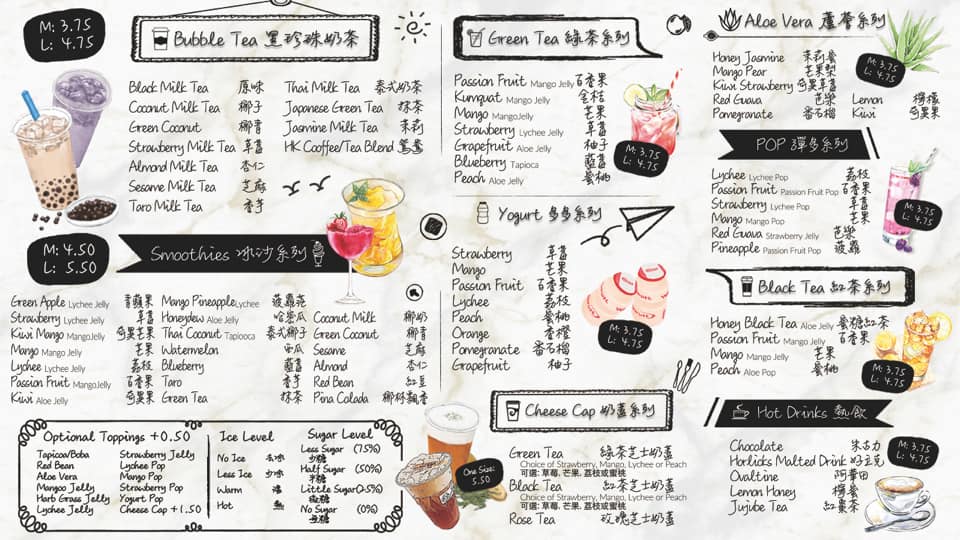 M: 3.75
L: 4.75
Bubble Tea 黑珍珠奶茶
Black Milk Tea 原味
Coconut Milk Tea 椰子
Green Coconut 椰香
Strawberry Milk Tea 草莓
Almond Milk Tea 杏仁
Sesame Milk Tea 芝麻
Taro Milk Tea 香芋
Thai Milk Tea 泰式奶茶
Japanese Green Tea 抹茶
Jasmine Milk Tea 茉莉
HK Cooffee/Tea Blend 鴛鴦
M: 4.50
L: 5.50
Smoothies 冰沙系列
Green Apple Lychee Jelly 青蘋果
Strawberry Lychee Jelly 草莓
Kiwi Mango MangoJelly 奇異芒果
Mango Mango Jelly 芒果
Lychee Lychee Jelly 荔枝
Passion Fruit MangoJelly 百香果
Kiwi Aloe Jelly 奇異果
Mango Pineapple Lychee 菠蘿芒
Honeydew Aloe Jelly 哈蜜瓜
Thai Coconut Tapiooca 泰式椰子
Watermelon 西瓜
Blueberry 藍莓
Taro 香芋
Green Tea 抹茶
Coconut Milk 椰奶
Green Coconut 椰香
Sesame 芝麻
Almond 杏仁
Red Bean 紅豆
Pina Colada 椰林飄香
Optional Toppings +0.50
Tapicoa/Boba
Red Bean
Aloe Vera
Mangoo Jelly
Harb Grass Jelly
Lychee Jelly
Strawberry Jelly
Lychee Pop
Mango Pop
Strawberry Pop
Yogurt Pop
Cheese Cap +1.50
Ice Level
No Ice 去冰
Less Ice 少冰
Warm 溫
Hot 熱
Sugar Level
Less Sugar (75%)
少糖
Half Sugar (50%)
半糖
Little Sugar(25%)
微糖
No Sugar (0%)
無糖
Green Tea 綠茶系列
Passion Fruit Mango Jelly 百香果
Kumquat Mango Jelly 金桔
Mango MangoJelly 芒果
Strawberry Lychee Jelly 草莓
Grapefruit Aloe Jelly 柚子
Blueberry Tapioca 藍莓
Peach Aloe Jelly 蜜桃
M: 3.75
L: 4.75
Yogurt 多多系列
Strawberry 草莓
Mango 芒果
Passion Fruit 百香果
Lychee 荔枝
Peach 蜜桃
Orange 香橙
Pomegranate 番石榴
Grapefruit 柚子
M: 3.75
L: 4.75
Cheese Cap 奶蓋系列
Green Tea 綠茶芝士奶蓋
Choice of Strawberry, Mango, Lychee or Peach
可選: 草莓, 芒果, 荔枝或蜜桃
Black Tea 紅茶芝士奶蓋
Choice of Strawberry, Mango, Lychee or Peach
可選: 草莓, 芒果, 荔枝或蜜桃
Rose Tea 玫瑰芝士奶蓋
One Size:
5.50
Aloe Vera 蘆薈系列
Honey Jasmine 茉莉蜜
Mango Pear 芒果梨
Kiwi Strawberry 奇異草莓
Red Guava 芭樂
Pomegranate 番石榴
Lemon 檸檬
Kiwi 奇異果
M: 3.75
L: 4.75
POP 彈多系列
Lychee Lychee Pop 荔枝
Passion Fruit Passion Fruit Pop 百香果
Strawberry Lychee Pop 草莓
Mango Mango Pop 芒果
Red Guava Strawberry Jelly 芭樂
Pineapple Passion Fruit Pop 菠蘿
M: 3.75
L: 4.75
Black Tea 紅茶系列
Honey Black Tea Aloe Jelly 蜜糖紅茶
Passion Fruit Mango Jelly 百香果
Mango Mango Jelly 芒果
Peach Aloe Pop 蜜桃
M: 3.75
L: 4.75
Hot Drinks 熱飲
Chocolate 朱古力
Horlicks Malted Drink 好立克
Ovaltine 阿華田
Lemon Honey 檸蜜
Jujube Tea 紅棗茶
M: 3.75
L: 4.75